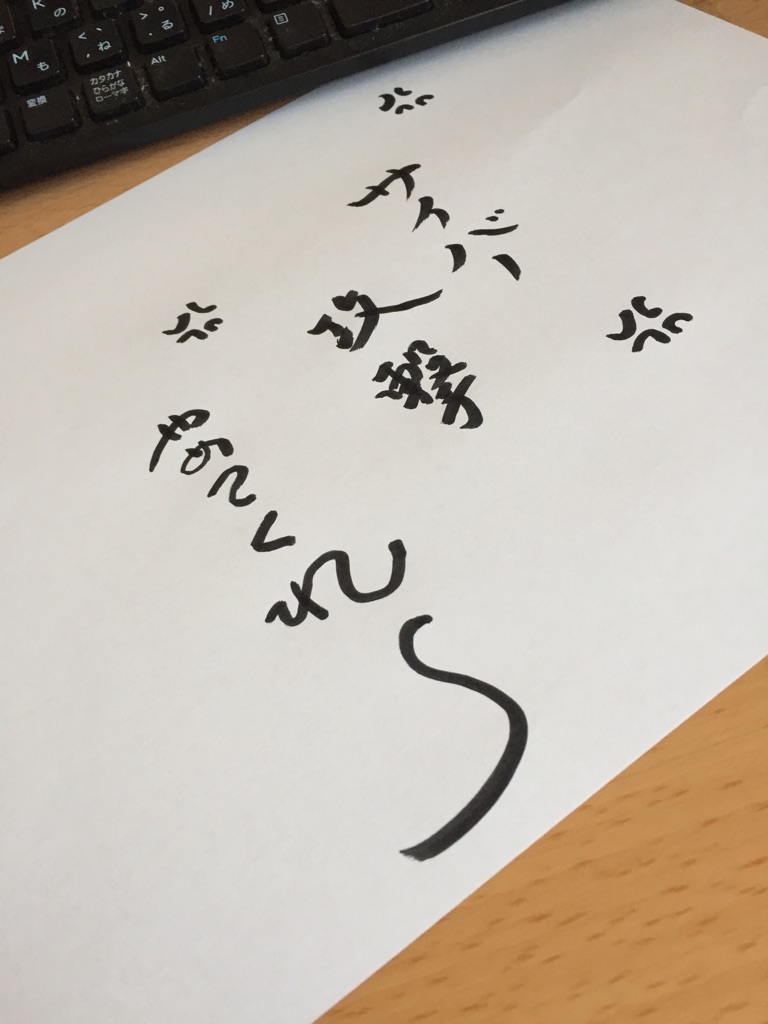 K の
< 、
, ね
> 。
. る
/ め
M も
変換
カタカナ
ひらがな
ローマ字
Alt
Fn
サイバー
攻撃
やめてくれ〜